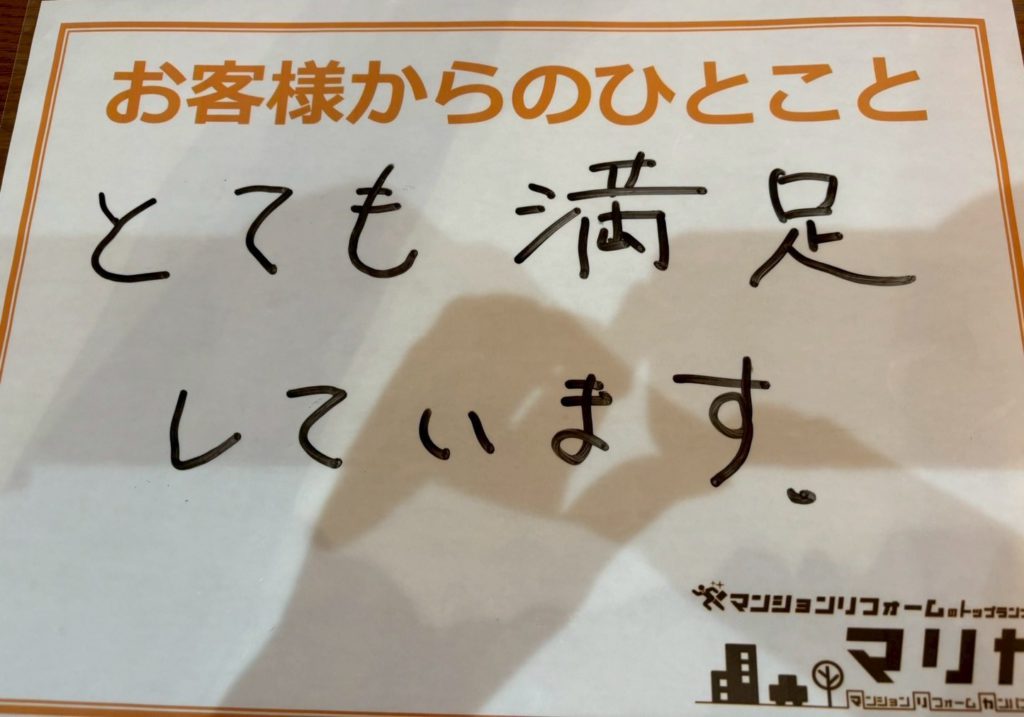 お客様からのひとこと
とても満足
しています.
マンションリフォームのトップラン
マリヤ
マンションリフォームカンパ